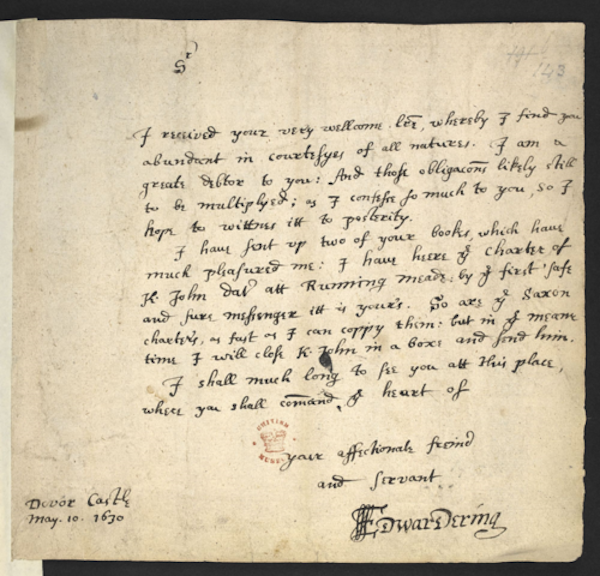 Sr
143
I received your very wellcome lre, whereby I find you
abundant in courtesyes of all natures. I am a
greate debtor to you: And those obligacõns likely still
to be multiplyed; as I confesse so much to you, so I
hope to wittnes itt to posterity.
I have sent up two of your books, which have
much pleasured me: I have heere ye Charter of
K. John dat att Running Meade: by ye first safe
and sure messenger itt is your's. So are ye Saxon
charters, as fast as I can coppy them: but in ye meane
time I will close K. John in a boxe and send him.
I shall much long to see you att this place,
where you shall comãnd ye heart of
your affectionate freind
and servant
Edward Dering
Dover Castle
May. 10. 1630
BRITISH
MUSEUM